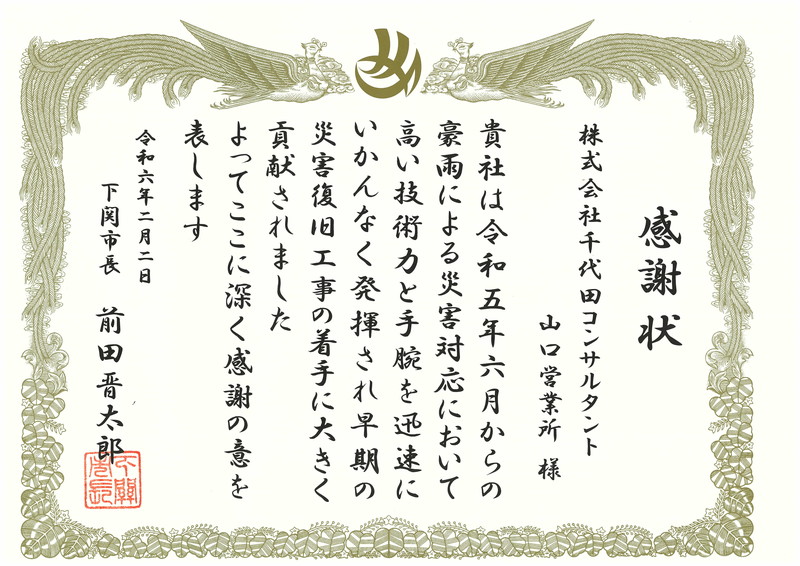 感謝状
株式会社千代田コンサルタント
山口営業所 様
貴社は令和五年六月からの
豪雨による災害対応において
高い技術力と手腕を迅速に
いかんなく発揮され早期の
災害復旧工事の着手に大きく
貢献されました
よってここに深く感謝の意を
表します
令和六年二月二日
下関市長 前田晋太郎
下關市長